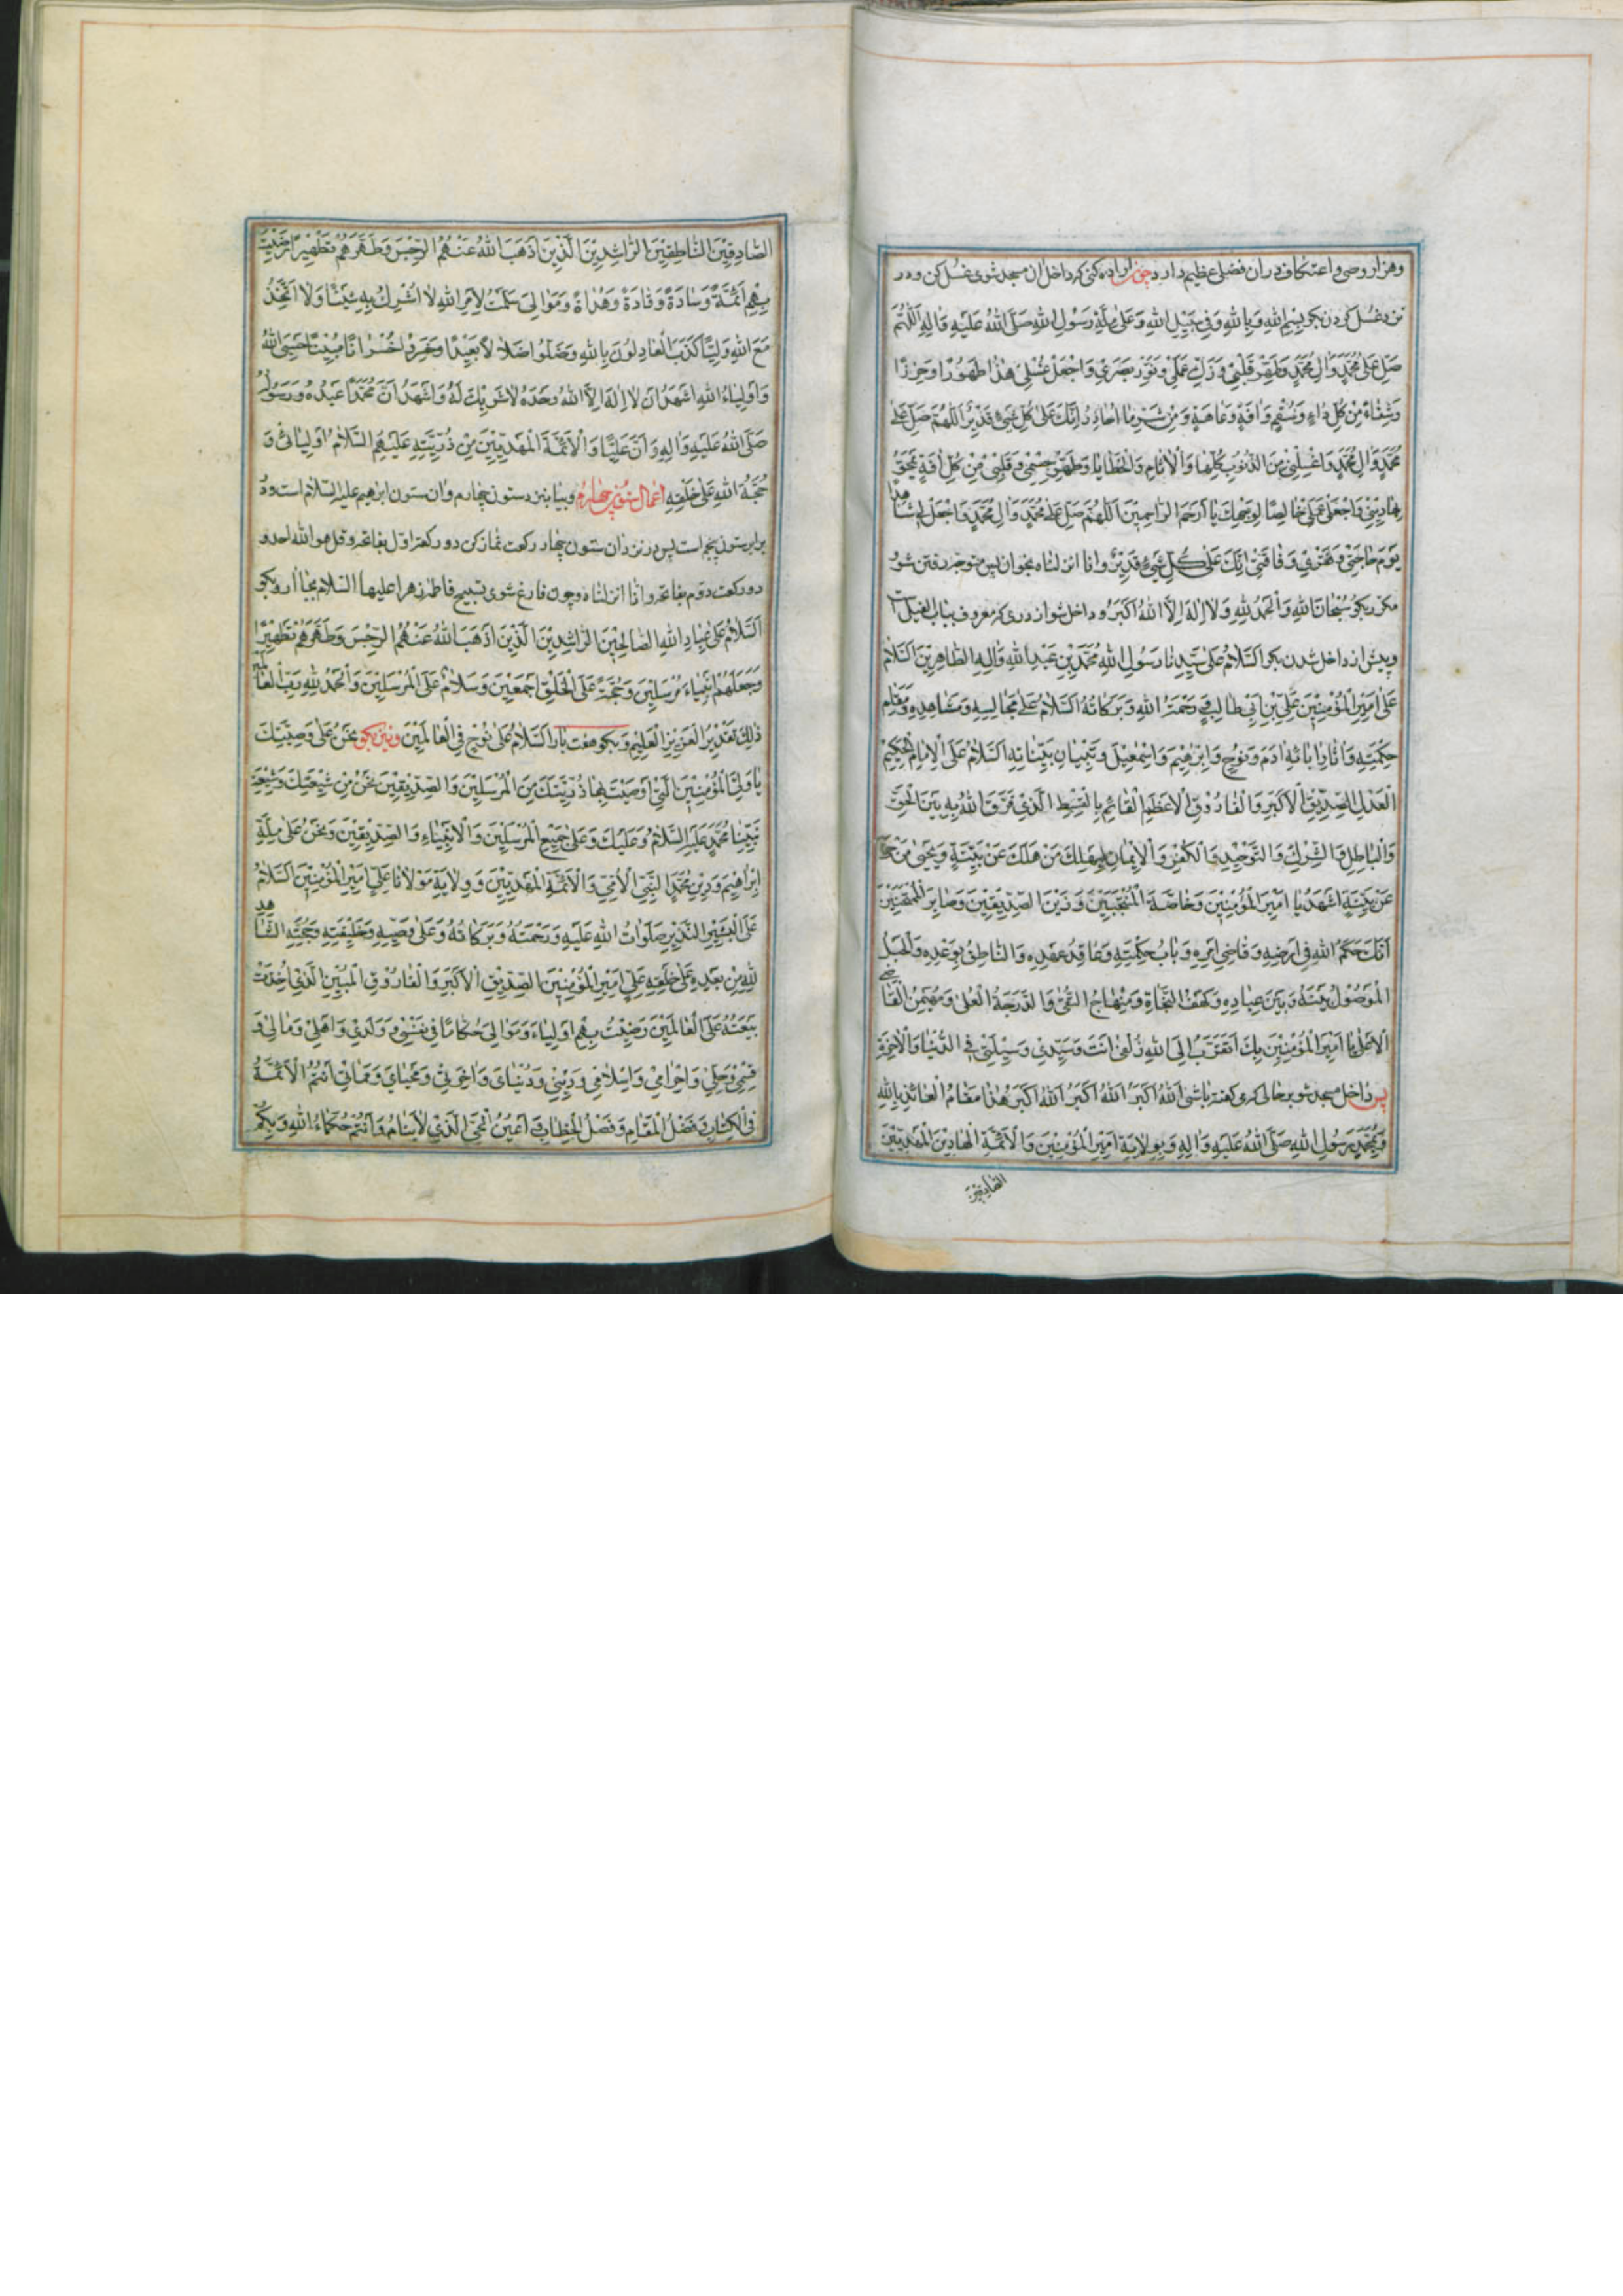 وهزار وصی واعتکاف دران فضلی عظیم دارد چون اراده کنی که داخل ان مسجد شوی غسل کن ودر
نزد غسل کردن بکو بِسْمِ اللهِ وَبِاللهِ وَفِي سَبِيلِ اللهِ وَعَلَىٰ مِلَّةِ رَسُولِ اللهِ صَلَّى اللهُ عَلَيْهِ وَالِهِ اَللّٰهُمَّ
صَلِّ عَلَىٰ مُحَمَّدٍ وَالِ مُحَمَّدٍ وَطَهِّرْ قَلْبِي وَزَكِّ عَمَلِي وَنَوِّرْ بَصَرِي وَاجْعَلْ غُسْلِي هٰذَا طَهُورًا وَحِرْزًا
وَشِفَاءً مِنْ كُلِّ دَاءٍ وَسُقْمٍ وَافَةٍ وَعَاهَةٍ وَمِنْ شَرِّ مَا اُحَاذِرُ اِنَّكَ عَلَىٰ كُلِّ شَيْءٍ قَدِيرٌ اَللّٰهُمَّ صَلِّ عَلَىٰ
مُحَمَّدٍ وَالِ مُحَمَّدٍ وَاغْسِلْنِي مِنَ الذُّنُوبِ كُلِّهَا وَالْاٰثَامِ وَالْخَطَايَا وَطَهِّرْ جِسْمِي وَقَلْبِي مِنْ كُلِّ افَةٍ تَمْحَقُ
بِهَا دِينِي وَاجْعَلْ عَمَلِي خَالِصًا لِوَجْهِكَ يَا اَرْحَمَ الرَّاحِمِينَ اَللّٰهُمَّ صَلِّ عَلَىٰ مُحَمَّدٍ وَالِ مُحَمَّدٍ وَاجْعَلْ لِي شَاهِدًا
يَوْمَ حَاجَتِي وَفَقْرِي وَفَاقَتِي اِنَّكَ عَلَىٰ كُلِّ شَيْءٍ قَدِيرٌ وانا انزلناه بخوان پس متوجه رفتن شو و
مکرر بکو سُبْحَانَ اللهِ وَالْحَمْدُ لِلّٰهِ وَلَا اِلٰهَ اِلَّا اللهُ اَكْبَرُ و داخل شو از دری که معروف بباب الفیل است
وپیش از داخل شدن بکو اَلسَّلَامُ عَلَىٰ سَيِّدِنَا رَسُولِ اللهِ مُحَمَّدِ بْنِ عَبْدِ اللهِ وَالِهِ الطَّاهِرِينَ اَلسَّلَامُ
عَلَىٰ اَمِيرِ الْمُؤْمِنِينَ عَلِيِّ بْنِ اَبِي طَالِبٍ وَرَحْمَةُ اللهِ وَبَرَكَاتُهُ اَلسَّلَامُ عَلَىٰ مَجَالِسِهِ وَمَشَاهِدِهِ وَمَقَامِ
حِكْمَتِهِ وَاٰثَارِ اٰبَائِهِ اٰدَمَ وَنُوحٍ وَاِبْرٰهِيمَ وَاِسْمٰعِيلَ وَتِبْيَانِ بَيِّنَاتِهِ اَلسَّلَامُ عَلَى الْاِمَامِ الْحَكِيمِ
الْعَدْلِ الصِّدِّيقِ الْاَكْبَرِ وَالْفَارُوقِ الْاَعْظَمِ الْقَائِمِ بِالْقِسْطِ الَّذِي فَرَّقَ اللهُ بِهِ بَيْنَ الْحَقِّ
وَالْبَاطِلِ وَالشِّرْكِ وَالتَّوْحِيدِ وَالْكُفْرِ وَالْاِيمَانِ لِيَهْلِكَ مَنْ هَلَكَ عَنْ بَيِّنَةٍ وَيَحْيَىٰ مَنْ حَيَّ
عَنْ بَيِّنَةٍ اَشْهَدُ يَا اَمِيرَ الْمُؤْمِنِينَ وَخَاصَّةَ الْمُنْتَجَبِينَ وَزَيْنَ الصِّدِّيقِينَ وَصَابِرَ الْمُمْتَحَنِينَ
اَنَّكَ حَكَمُ اللهِ فِي اَرْضِهِ وَقَاضِي اَمْرِهِ وَبَابُ حِكْمَتِهِ وَعَاقِدُ عَهْدِهِ وَالنَّاطِقُ بِوَعْدِهِ وَالْحَبْلُ
الْمَوْصُولُ بَيْنَهُ وَبَيْنَ عِبَادِهِ وَكَهْفُ النَّجَاةِ وَمِنْهَاجُ التُّقَىٰ وَالدَّرَجَةُ الْعُلْيَا وَمُهَيْمِنُ الْقَاضِي
الْاَعْلَىٰ يَا اَمِيرَ الْمُؤْمِنِينَ بِكَ اَتَقَرَّبُ اِلَى اللهِ زُلْفَىٰ اَنْتَ وَسَيِّدِي وَسِيلَتِي فِي الدُّنْيَا وَالْاٰخِرَةِ
پس داخل مسجد شو بر حالی که میکفته باشی اَللهُ اَكْبَرُ اَللهُ اَكْبَرُ اَللهُ اَكْبَرُ هٰذَا مَقَامُ الْعَائِذِ بِاللهِ
وَبِمُحَمَّدٍ رَسُولِ اللهِ صَلَّى اللهُ عَلَيْهِ وَالِهِ وَبِوِلَايَةِ اَمِيرِ الْمُؤْمِنِينَ وَالْاَئِمَّةِ الْهَادِينَ الْمَهْدِيِّينَ
الصادقین
الصَّادِقِينَ النَّاطِقِينَ الرَّاشِدِينَ الَّذِينَ اَذْهَبَ اللهُ عَنْهُمُ الرِّجْسَ وَطَهَّرَهُمْ تَطْهِيرًا رَضِيتُ
بِهِمْ اَئِمَّةً وَسَادَةً وَقَادَةً وَهُدَاةً وَمَوَالِيَ سَلَّمْتُ لِاَمْرِ اللهِ لَا اُشْرِكُ بِهِ شَيْئًا وَلَا اَتَّخِذُ
مَعَ اللهِ وَلِيًّا كَذَبَ الْعَادِلُونَ بِاللهِ وَضَلُّوا ضَلَالًا بَعِيدًا وَخَسِرُوا خُسْرَانًا مُبِينًا حَسْبِيَ اللهُ
وَاَوْلِيَاءُ اللهِ اَشْهَدُ اَنْ لَا اِلٰهَ اِلَّا اللهُ وَحْدَهُ لَا شَرِيكَ لَهُ وَاَشْهَدُ اَنَّ مُحَمَّدًا عَبْدُهُ وَرَسُولُهُ
صَلَّى اللهُ عَلَيْهِ وَالِهِ وَاَنَّ عَلِيًّا وَالْاَئِمَّةَ الْمَهْدِيِّينَ مِنْ ذُرِّيَّتِهِ عَلَيْهِمُ السَّلَامُ اَوْلِيَائِي وَ
حُجَّةُ اللهِ عَلَىٰ خَلْقِهِ اعمال ستون چهارم وبیا بنزد ستون چهارم وان ستون ابرهیم علیه السلام است ودر
برابر ستون پنجم است پس در نزد ان ستون چهار رکعت نماز کن دو رکعت اول بفاتحه وقل هو الله احد و
دو رکعت دوم بفاتحه وانا انزلناه وچون فارغ شوی تسبیح فاطمه زهرا علیها السلام بجا اٰر وبکو
اَلسَّلَامُ عَلَىٰ عِبَادِ اللهِ الصَّالِحِينَ الرَّاشِدِينَ الَّذِينَ اَذْهَبَ اللهُ عَنْهُمُ الرِّجْسَ وَطَهَّرَهُمْ تَطْهِيرًا
وَجَعَلَهُمْ اَنْبِيَاءَ مُرْسَلِينَ وَحُجَّةً عَلَى الْخَلْقِ اَجْمَعِينَ وَسَلَامٌ عَلَى الْمُرْسَلِينَ وَالْحَمْدُ لِلّٰهِ رَبِّ الْعَالَمِينَ
ذٰلِكَ تَقْدِيرُ الْعَزِيزِ الْعَلِيمِ وبکو هفت بار اَلسَّلَامُ عَلَىٰ نُوحٍ فِي الْعَالَمِينَ ونیز بکو نَحْنُ عَلَىٰ وَصِيَّتِكَ
يَا وَلِيَّ الْمُؤْمِنِينَ الَّتِي اَوْصَيْتَ بِهَا ذُرِّيَّتَكَ مِنَ الْمُرْسَلِينَ وَالصِّدِّيقِينَ نَحْنُ مِنْ شِيعَتِكَ وَشِيعَةِ
نَبِيِّنَا مُحَمَّدٍ عَلَيْهِ السَّلَامُ وَعَلَيْكَ وَعَلَىٰ جَمِيعِ الْمُرْسَلِينَ وَالْاَنْبِيَاءِ وَالصِّدِّيقِينَ وَنَحْنُ عَلَىٰ مِلَّةِ
اِبْرَاهِيمَ وَدِينِ مُحَمَّدٍ النَّبِيِّ الْاُمِّيِّ وَالْاَئِمَّةِ الْمَهْدِيِّينَ وَوِلَايَةِ مَوْلَانَا عَلِيٍّ اَمِيرِ الْمُؤْمِنِينَ اَلسَّلَامُ
عَلَى الْبَشِيرِ النَّذِيرِ صَلَوَاتُ اللهِ عَلَيْهِ وَرَحْمَتُهُ وَبَرَكَاتُهُ وَعَلَىٰ وَصِيِّهِ وَخَلِيفَتِهِ وَحُجَّتِهِ الشَّاهِدِ
لِلّٰهِ مِنْ بَعْدِهِ عَلَىٰ خَلْقِهِ عَلِيٍّ اَمِيرِ الْمُؤْمِنِينَ الصِّدِّيقِ الْاَكْبَرِ وَالْفَارُوقِ الْمُبِينِ الَّذِي اُخِذَتْ
بَيْعَتُهُ عَلَى الْعَالَمِينَ رَضِيتُ بِهِمْ اَوْلِيَاءَ وَمَوَالِيَ حُكَّامًا فِي نَفْسِي وَوَلَدِي وَاَهْلِي وَمَالِي وَ
قِسْمِي وَحِلِّي وَاِحْرَامِي وَاِسْلَامِي وَدِينِي وَدُنْيَايَ وَاٰخِرَتِي وَمَحْيَايَ وَمَمَاتِي اَنْتُمُ الْاَئِمَّةُ
فِي الْكِتَابِ وَفَصْلُ الْمَقَامِ وَفَصْلُ الْخِطَابِ وَاَعْيُنُ الْحَيِّ الَّذِي لَا يَنَامُ وَاَنْتُمْ حُكَمَاءُ اللهِ وَبِكُمْ